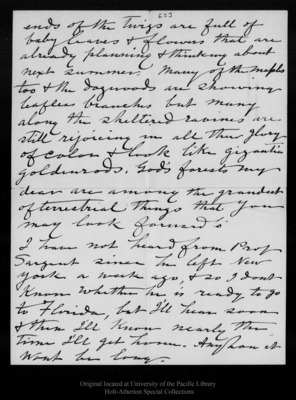 623
ends of the twigs are full of
baby leaves & flowers that are
already planning & thinking about
next summer. Many of the maples
too & the dogwoods are showing
leafless branches but many
along the sheltered ravines are
still rejoicing in all their glory
of color & look like gigantic
goldenrods. God's forests my
dear are among the grandest
of terrestrial things that you
may look forward to
I have not heard from Prof
Sargent since he left New
York a week ago, & so I dont
know whether he is ready to go
to Florida, but I'll hear soon
& then I'll know nearly the
time I'll get home. Anyhow it
wont be long.
Original located at University of the Pacific Library
Holt-Atherton Special Collections